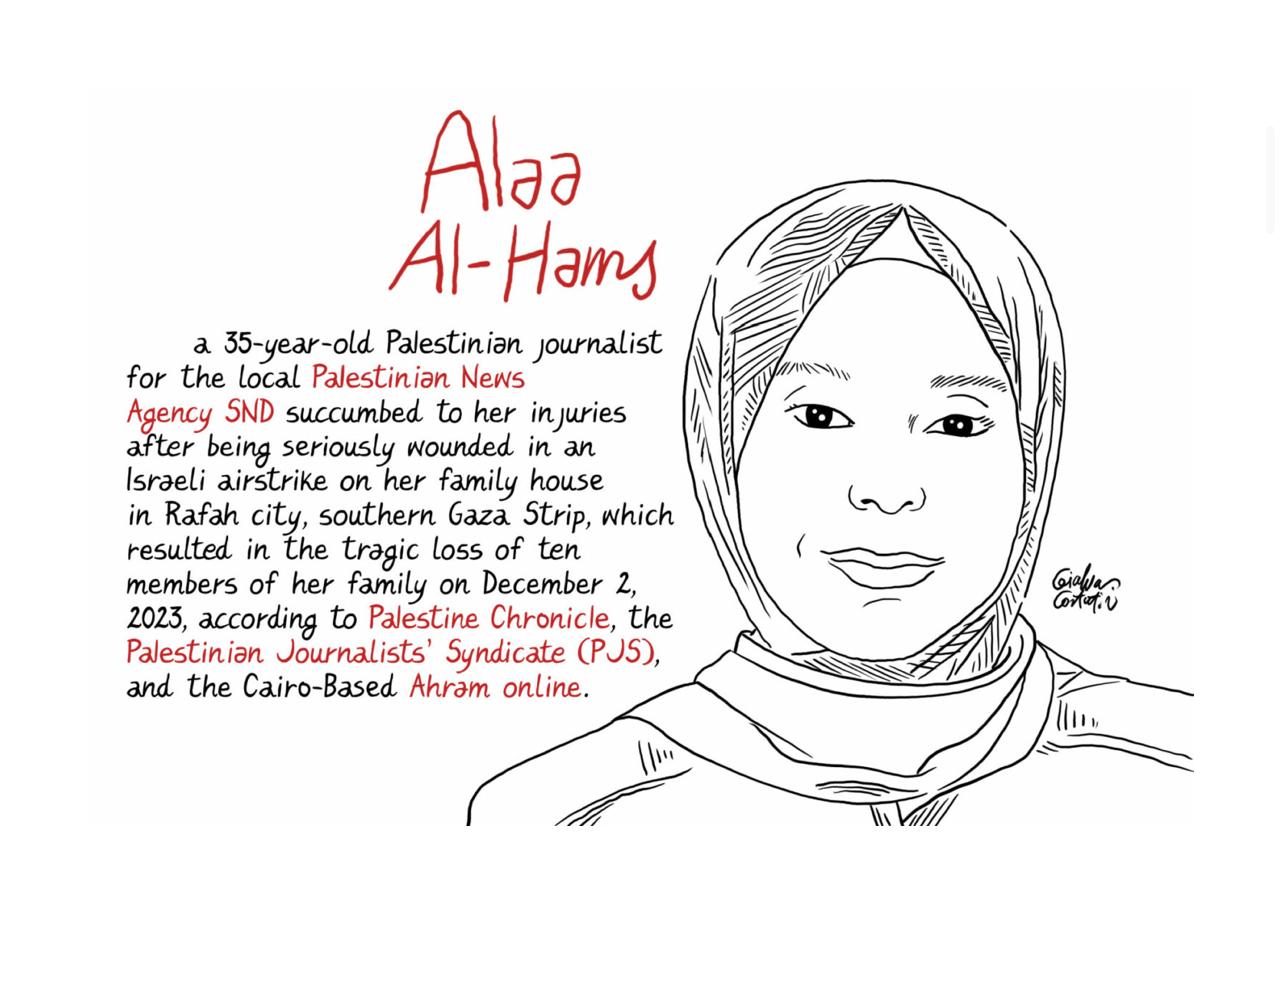 Alaa
Al-Hams
a 35-year-old Palestinian journalist
for the local Palestinian News
Agency SND succumbed to her injuries
after being seriously wounded in an
Israeli airstrike on her family house
in Rafah city, southern Gaza Strip, which
resulted in the tragic loss of ten
members of her family on December 2,
2023, according to Palestine Chronicle, the
Palestinian Journalists' Syndicate (PJS),
and the Cairo-Based Ahram online.